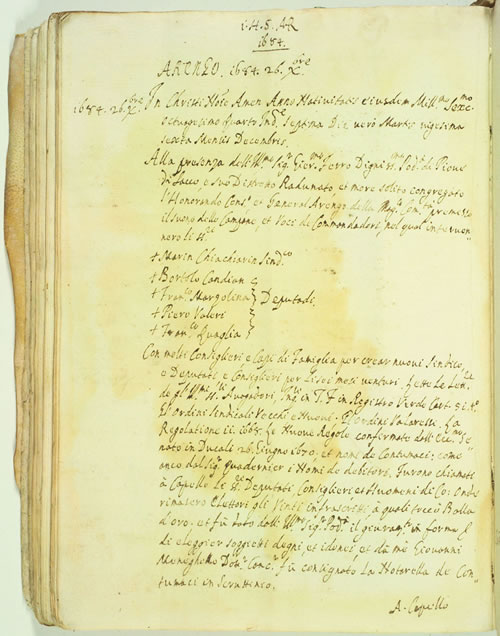 1684.
ARENGO. 1684. 26. Xbre
1684. 26. Xbre. In Christi Noie Amen Anno Nativitatis eiusdem Mill.mo Sexc.mo
octuagesimo quarto Ind.e Septima Die vero Martis vigesima
sexta Mensis Decembris.
Alla presenza dell' Ill.mo Sig.r Gier.mo Ferro Digniss.mo Pod.tà di Piove
di Sacco, e suo Distretto Radunato, et more solito congregato
l'Honorando Cons.o et General Arengo della Mag.ca Com.tà premesso
il suono delle Campane, et voci de Commandadori, nel qual interven
nero li
+ Marin Chiachiarin Sind.co
+ Bortolo Candian
+ Fran.co Margolina Deputadi
+ Piero Valeri
+ Fran.co
Con molti Consiglieri e Capi di Famiglia per crear nuovi Sindico,
e Deputati, e Consiglieri per li sei mesi venturi. Lette le
de gl' Ill.mi Avogadori, in Registro Verde Cart. 5.
Et Ordini Sindicali Vecchi e Nuovi. Et Ordini Valaressi. La
Regolatione 11. 1665. Le Nuove Regole confirmate dall' Ecc.mo Se-
nato in Ducali 26. Giugno 1670. et nomi de Contumaci; come
anco dal Sig.r quadernier i Nomi de debitori. Furono chiamati
à Capello li Deputati Consiglieri et Huomeni di Co: Onde
rimasero Elettori gli Venti infrascritti à quali toccò Balla
d'oro. et fù dato dall' Ill.mo Sig.r Pod.tà il giuram.to in forma
di elegger soggetti degni, et idonei, et da me Giovanni
Meneghello fù consignato La Notarella de Con-
tumaci in Scruttinio.
A. Capello